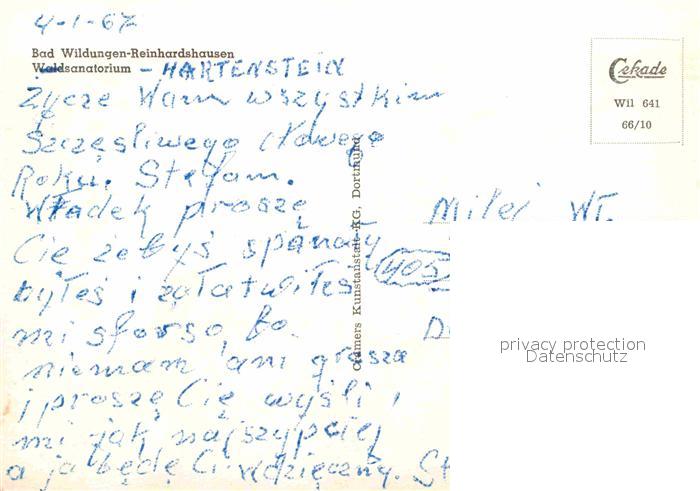 4-1-67
Bad Wildungen-Reinhardshausen
Waldsanatorium - HARTENSTEIN
Życzę Wam wszystkim
Szczęsliwego Nowego
Roku. Stefan.
Władek proszę
Cię żebyś
byłeś i załatwiłeś
mi bo.
niemam ani grosza
i proszę Cię wyśli
mi jak najszypciej
a ja będę Ci wdzięczny. St
Cramers Kunstanstalt KG, Dortmund
Cekade
Wil 641
66/10
Milej Wł.
405
D
privacy protection
Datenschutz